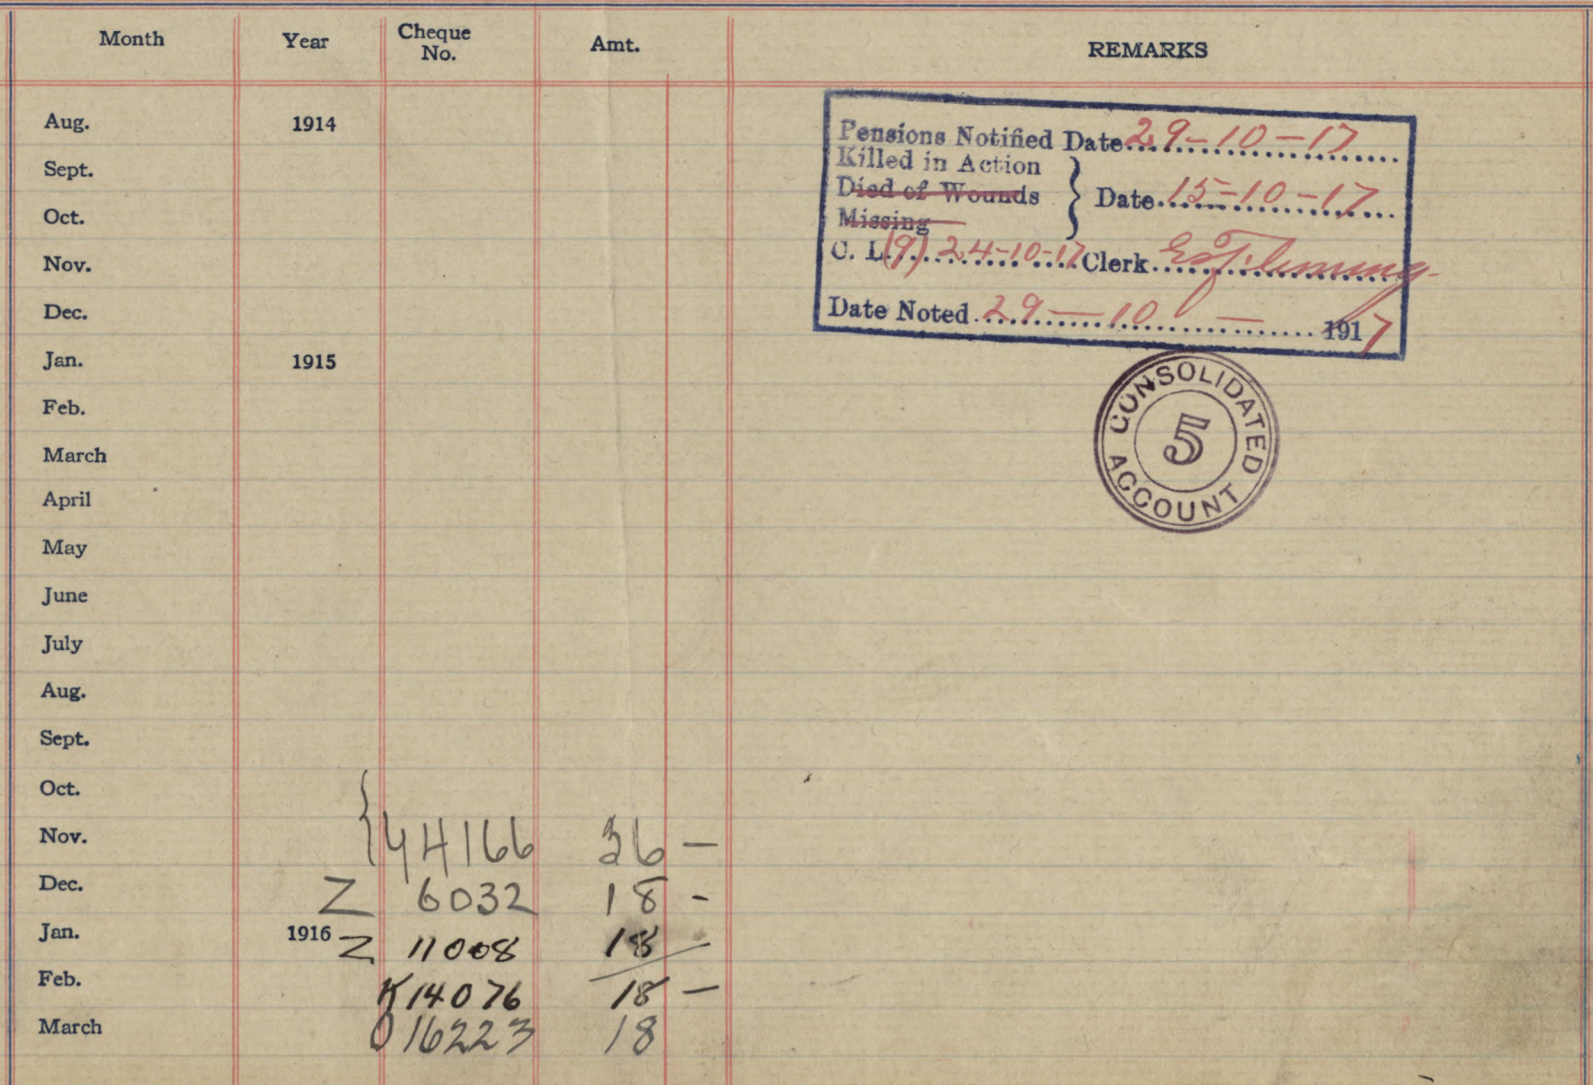 Month Year Cheque No. Amt. REMARKS
Aug. 1914
Sept.
Oct.
Nov.
Dec.
Jan. 1915
Feb.
March
April
May
June
July
Aug.
Sept.
Oct.
Nov. 44166 36 —
Dec. Z 6032 18 -
Jan. 1916 Z 11008 18 -
Feb. K 14076 18 —
March O 16223 18
Pensions Notified Date 29-10-17
Killed in Action
Died of Wounds } Date 15-10-17
Missing
C. L. (9) 24-10-17 Clerk
Date Noted 29 — 10 — 1917
CONSOLIDATED
5
ACCOUNT